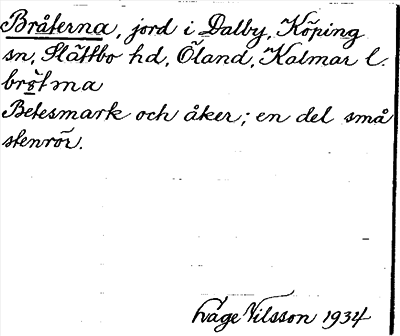 Bråterna, jord i Dalby, Köping
sn, Slättbo hd, Öland, Kalmar l.
brö̀tma
Betesmark och åker; en del små
stenrör.
Tage Nilsson 1934